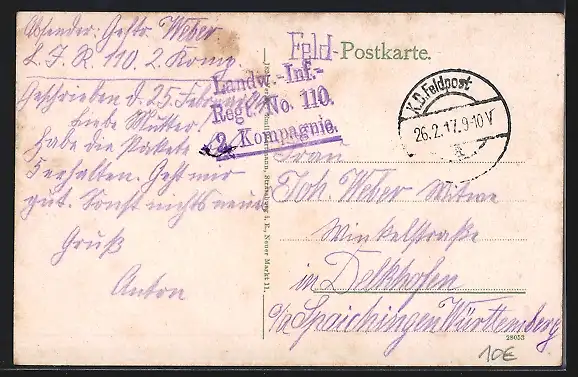 Absender: Gefr. Weber
L. J. R. 110. 2. Komp.
Geschrieben d. 25. Februar
Liebe Mutter!
habe die Pakete
5 erhalten. Geht mir
gut. Sonst nichts neues
Gruß
Anton
Feld-Postkarte.
Landw.-Inf.-
Regt. No. 110.
2. Kompagnie.
K.D. Feldpost
26.2.17. 9-10 V
Frau
Joh. Weber Witwe
Winkelstraße
in Delkhofen
O/A Spaichingen Württemberg
Strassburg i. E., Neuer Markt 11.
28053
10€